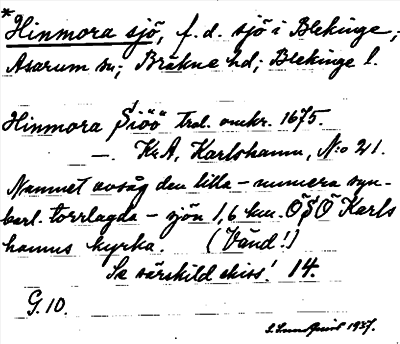 *Hinmora sjö, f. d. sjö i Blekinge;
Asarum sn; Bräkne hd; Blekinge l.
Hinmora Siöö Trol. omkr. 1675.
—. KrA, Karlshamn, N:o 21.
Namnet avsåg den lilla – numera syn-
barl. torrlagda – sjön 1,6 km. ÖSÖ Karls
hamns kyrka. (Vänd!)
Se särskild skiss! 14.
G. 10.
1937.